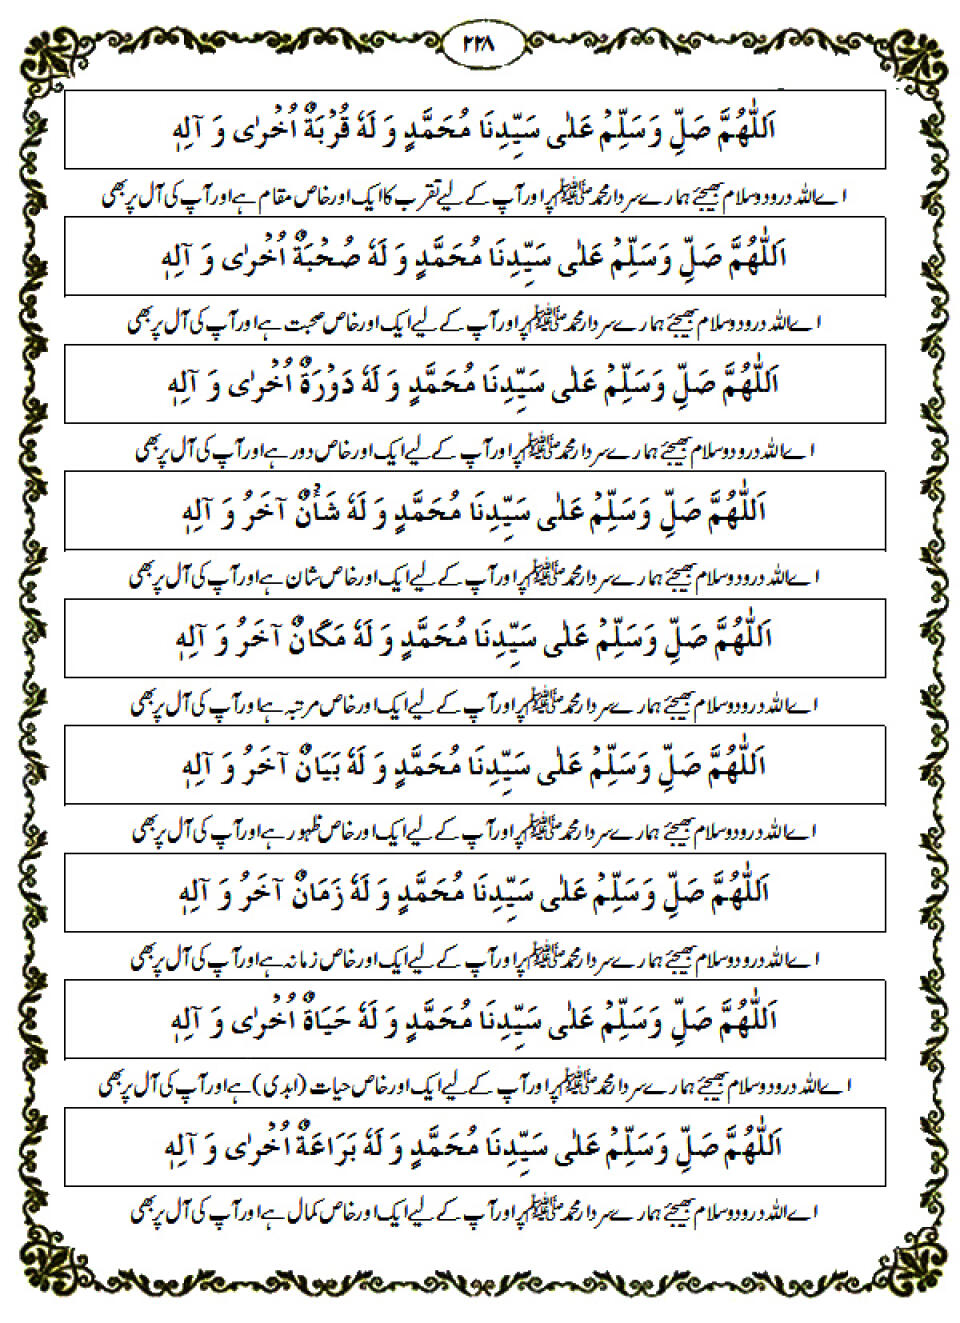 ۲۲۸
اَللّٰهُمَّ صَلِّ وَسَلِّمْ عَلٰى سَيِّدِنَا مُحَمَّدٍ وَ لَهٗ قُرْبَةٌ اُخْرٰى وَ آلِهٖ
اے اللہ درود و سلام بھیجئے ہمارے سردار محمد ﷺ پر اور آپ کے لیے تقرب کا ایک اور خاص مقام ہے اور آپ کی آل پر بھی
اَللّٰهُمَّ صَلِّ وَسَلِّمْ عَلٰى سَيِّدِنَا مُحَمَّدٍ وَ لَهٗ صُحْبَةٌ اُخْرٰى وَ آلِهٖ
اے اللہ درود و سلام بھیجئے ہمارے سردار محمد ﷺ پر اور آپ کے لیے ایک اور خاص صحبت ہے اور آپ کی آل پر بھی
اَللّٰهُمَّ صَلِّ وَسَلِّمْ عَلٰى سَيِّدِنَا مُحَمَّدٍ وَ لَهٗ دَوْرَةٌ اُخْرٰى وَ آلِهٖ
اے اللہ درود و سلام بھیجئے ہمارے سردار محمد ﷺ پر اور آپ کے لیے ایک اور خاص دور ہے اور آپ کی آل پر بھی
اَللّٰهُمَّ صَلِّ وَسَلِّمْ عَلٰى سَيِّدِنَا مُحَمَّدٍ وَ لَهٗ شَأْنٌ آخَرُ وَ آلِهٖ
اے اللہ درود و سلام بھیجئے ہمارے سردار محمد ﷺ پر اور آپ کے لیے ایک اور خاص شان ہے اور آپ کی آل پر بھی
اَللّٰهُمَّ صَلِّ وَسَلِّمْ عَلٰى سَيِّدِنَا مُحَمَّدٍ وَ لَهٗ مَكَانٌ آخَرُ وَ آلِهٖ
اے اللہ درود و سلام بھیجئے ہمارے سردار محمد ﷺ پر اور آپ کے لیے ایک اور خاص مرتبہ ہے اور آپ کی آل پر بھی
اَللّٰهُمَّ صَلِّ وَسَلِّمْ عَلٰى سَيِّدِنَا مُحَمَّدٍ وَ لَهٗ بَيَانٌ آخَرُ وَ آلِهٖ
اے اللہ درود و سلام بھیجئے ہمارے سردار محمد ﷺ پر اور آپ کے لیے ایک اور خاص ظہور ہے اور آپ کی آل پر بھی
اَللّٰهُمَّ صَلِّ وَسَلِّمْ عَلٰى سَيِّدِنَا مُحَمَّدٍ وَ لَهٗ زَمَانٌ آخَرُ وَ آلِهٖ
اے اللہ درود و سلام بھیجئے ہمارے سردار محمد ﷺ پر اور آپ کے لیے ایک اور خاص زمانہ ہے اور آپ کی آل پر بھی
اَللّٰهُمَّ صَلِّ وَسَلِّمْ عَلٰى سَيِّدِنَا مُحَمَّدٍ وَ لَهٗ حَيَاةٌ اُخْرٰى وَ آلِهٖ
اے اللہ درود و سلام بھیجئے ہمارے سردار محمد ﷺ پر اور آپ کے لیے ایک اور خاص حیات (ابدی) ہے اور آپ کی آل پر بھی
اَللّٰهُمَّ صَلِّ وَسَلِّمْ عَلٰى سَيِّدِنَا مُحَمَّدٍ وَ لَهٗ بَرَاعَةٌ اُخْرٰى وَ آلِهٖ
اے اللہ درود و سلام بھیجئے ہمارے سردار محمد ﷺ پر اور آپ کے لیے ایک اور خاص کمال ہے اور آپ کی آل پر بھی